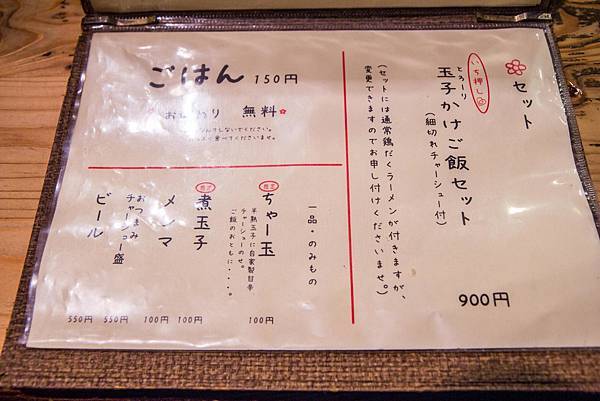 セット
いち押し
とろ〜り
玉子かけご飯セット
(細切れチャーシュー付)
900円
(セットには通常鶏だくラーメンが付きますが、
変更できますのでお申し付けくださいませ。)
ごはん 150円
おかわり 無料
しないでください。
食べてくださいませ。
一品・のみもの
ちゃー玉
半熟玉子に自家製甘辛
チャーシューのせ。
ご飯のおともに・・・。
100円
煮玉子
100円
メンマ
100円
おつまみ
チャーシュー盛
550円
ビール
550円